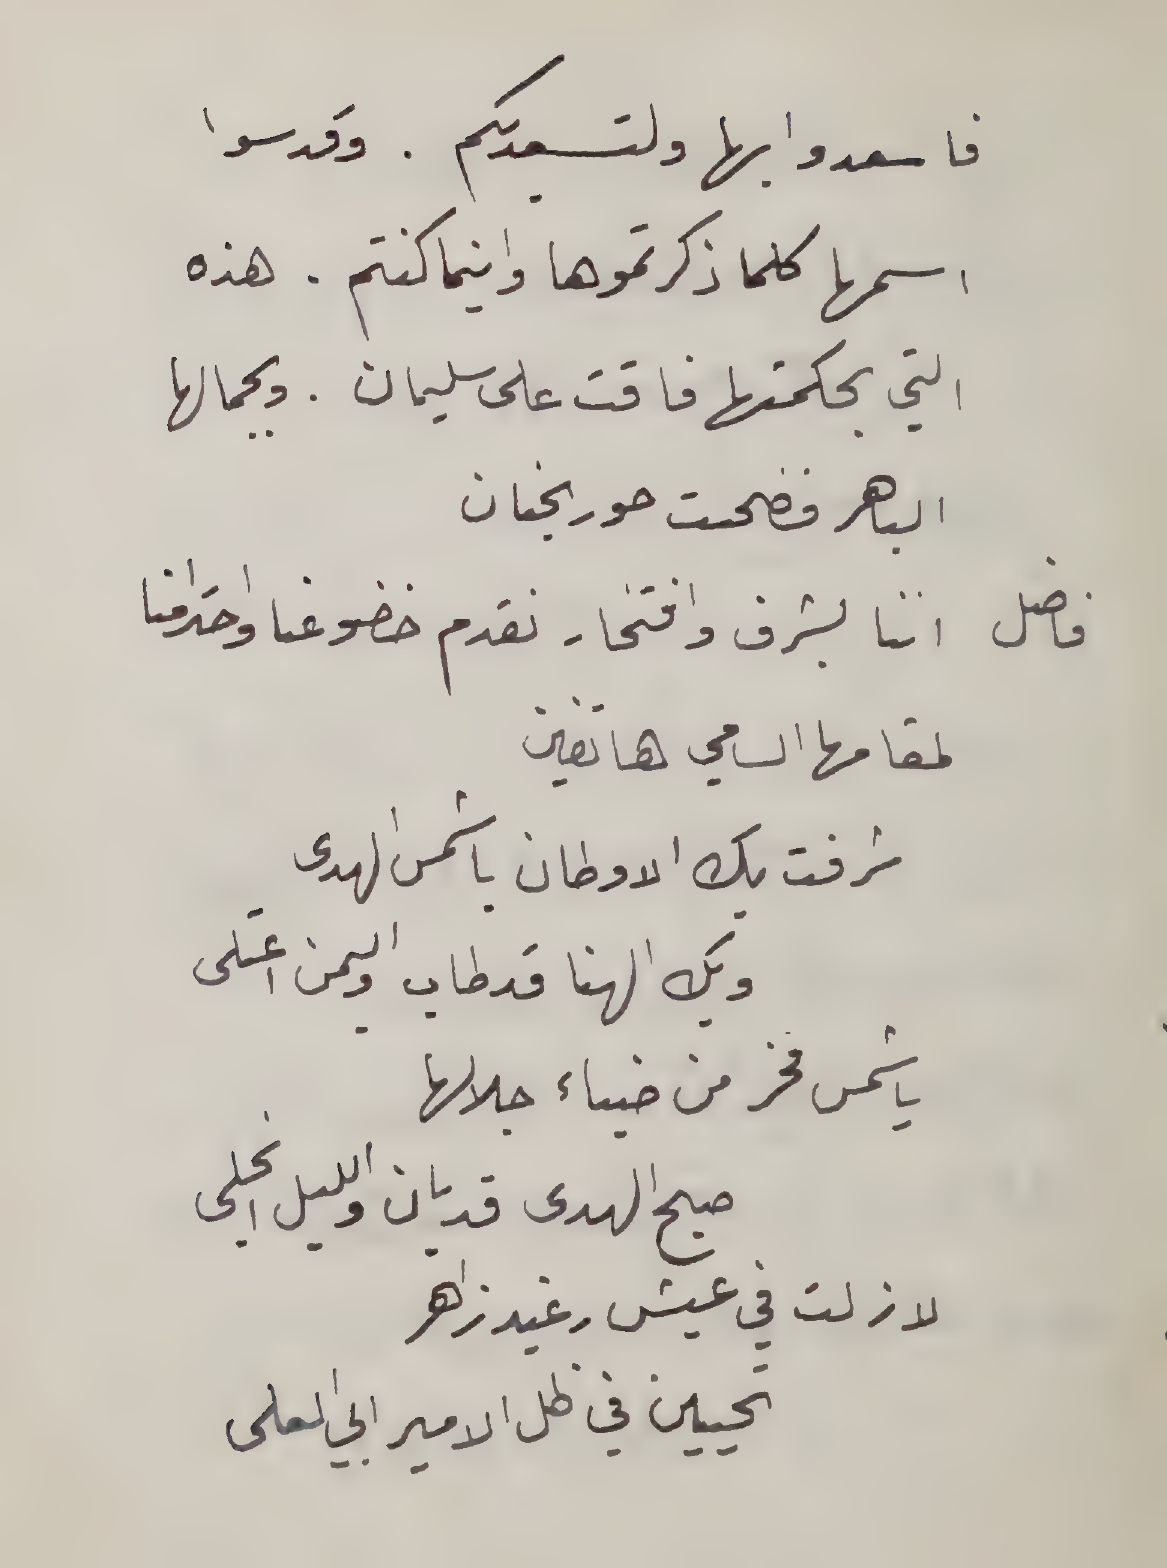 فاسعدوا بها ولتسعدكم . وقدسوا
اسمها كلما ذكرتموها واينما كنتم . هذه
التي بحكمتها فاقت على سليمان . وبجمالها
الباهر فضحت حور بجنان
فاضل اننا بشرف وافتخار نقدم خضوعنا واحترامنا
لمقامها السامي هاتفين
شرفت بك الاوطان ياشمس الهدى
وبك الهنا قد طاب واليمن اعتلى
ياشمس فخر من ضياء جلالها
صبح الهدى قد بان والليل انجلى
لا زلت في عيش رغيد زاهر
تحيين في ظل الامير ابي المعلى